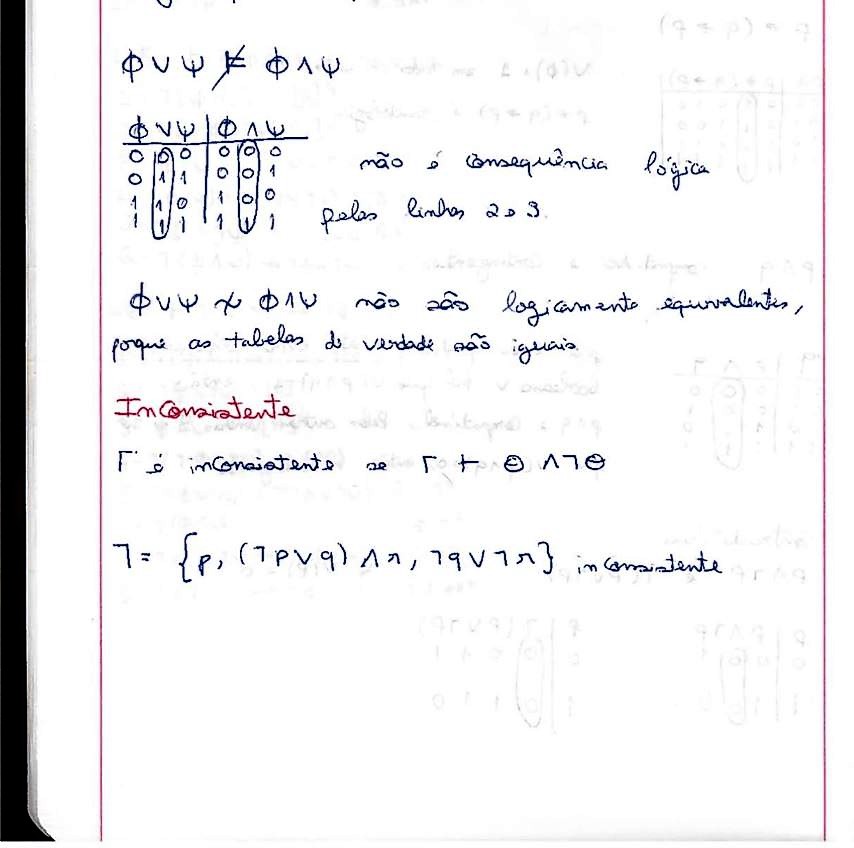 Φ ∨ Ψ ⊭ Φ ∧ Ψ
Φ ∨ Ψ | Φ ∧ Ψ
0 0 0 0 0 0
0 1 1 0 0 1 não é consequência lógica
1 1 0 1 0 0
1 1 1 1 1 1 pelas linhas 2 e 3.
Φ ∨ Ψ ≁ Φ ∧ Ψ não são logicamente equivalentes,
porque as tabelas de verdade são iguais
Inconsistente
Γ é inconsistente se Γ ⊢ Θ ∧ ¬Θ
Γ = {p, (¬p ∨ q) ∧ r, ¬q ∨ ¬r} inconsistente